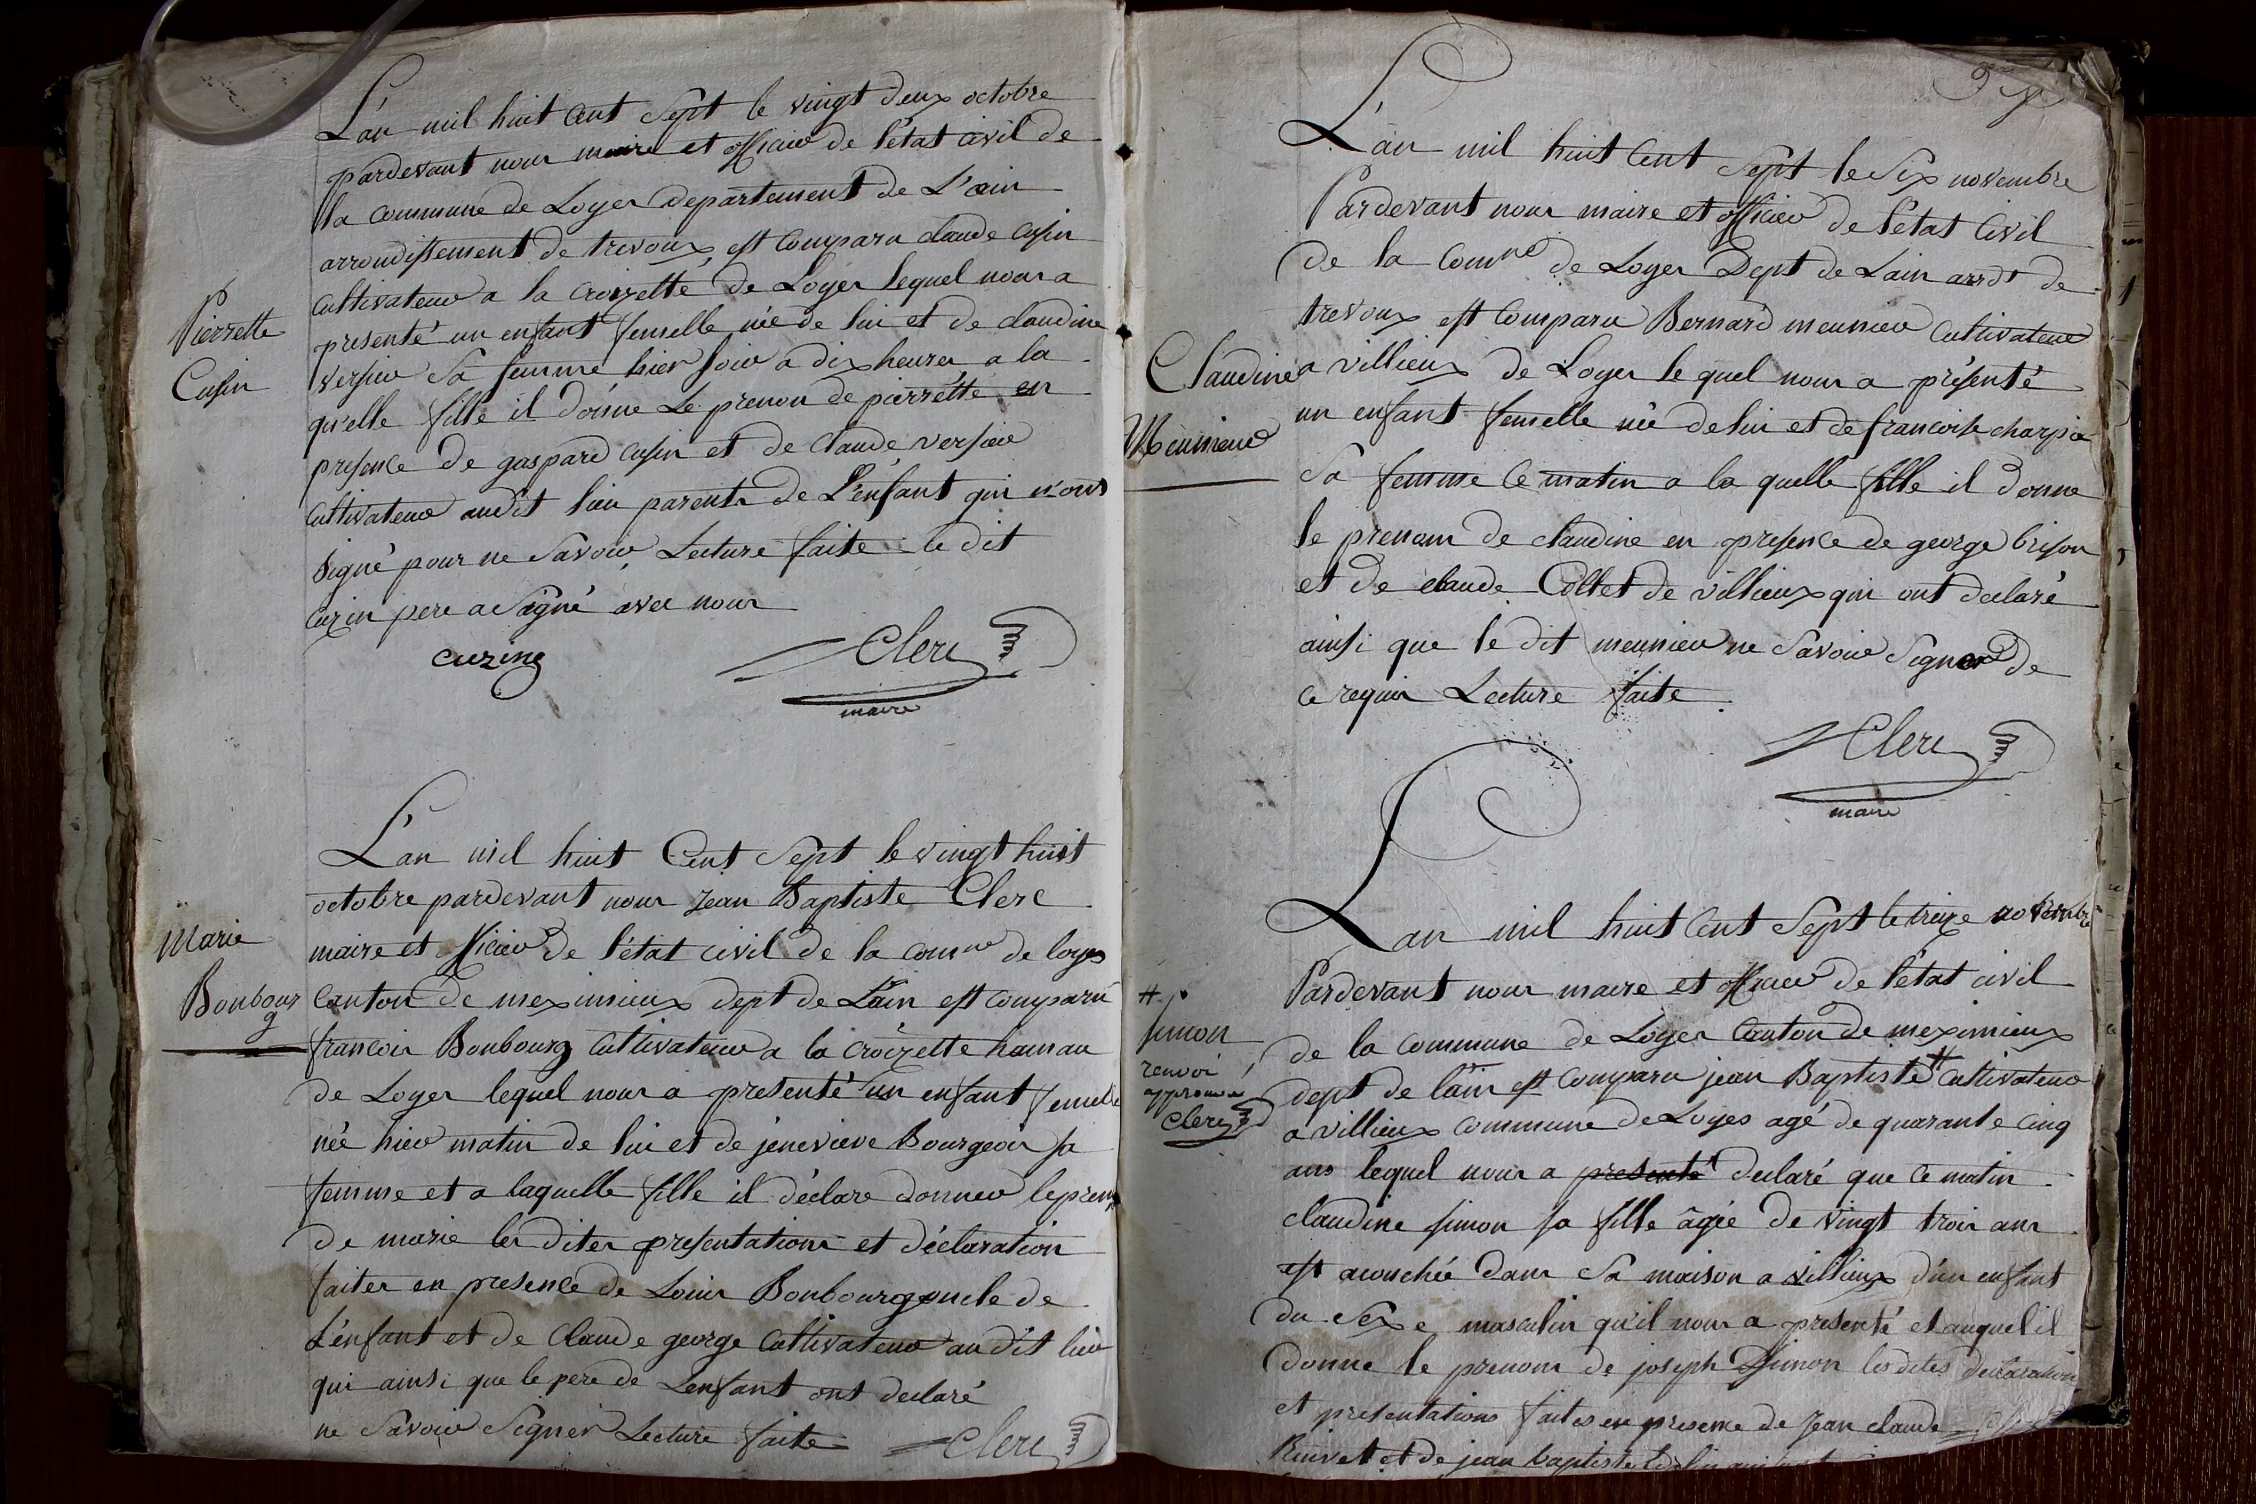 L'an mil huit Cent Sept le vingt deux octobre
pardevant nous maire et officier de l'état civil de
la commune de Loyes departement de L'ain
arrondissement de trevoux, est comparu claude cusin
cultivateur a la croizette de Loyes lequel nous a
presenté un enfant femelle née de lui et de claudine
versieu Sa femme hier soir a dix heures a la
qu'elle fille il donne Le prenom de pierrette en
presence de gaspard cusin et de claude versieu
cultivateur audit lieu parents de L'enfant qui n'ont
signé pour ne Savoir, Lecture faite le dit
cuzin pere a Signé avec nous
cuzin
Clerc
maire
Pierrette
Cusin
L'an mil huit Cent Sept le vingt huit
octobre pardevant nous Jean Baptiste Clerc
maire et officier de l'état civil de la comne de loyes
Canton de meximieux dept de L'ain est comparu
francois Bonbourg cultivateur a la croizette hameau
de Loyes lequel nous a presenté un enfant femelle
née hier matin de lui et de jenevieve Bourgeois sa
femme et a laquelle fille il déclare donner le prenm
de marie les dites presentations et déclaration
faites en presence de Louis Bonbourg oncle de
L'enfant et de Claude george cultivateur au dit lieu
qui ainsi que le pere de L'enfant ont declaré
ne Savoir Signer Lecture faite
Clerc
Marie
Bonbourg
L'an mil huit Cent Sept le Six novembre
Pardevant nous maire et officier de l'état Civil
de la Comne de Loyes Dept de L'ain arrdt de
trevoux est Comparu Bernard meunier Cultivateur
a villieux de Loyes le quel nous a présenté
un enfant femelle née de lui et de francoise charpie
Sa femme Ce matin a la quelle fille il donne
le prenom de claudine en presence de george brison
et de claude Collet de villieux qui ont declaré
ainsi que le dit meunier ne Savoir Signer de
ce requis Lecture faite.
Clerc
maire
Claudine
Meunieur
L'an mil huit Cent Sept le treize novembre
Pardevant nous maire et officier de l'état civil
de la commune de Loyes Canton de meximieux
dept de l'ain est comparu jean Baptiste # cultivateur
a villieux commune de Loyes agé de quarante cinq
ans lequel nous a presenté declaré que ce matin
claudine simon sa fille âgée de vingt trois ans
est acouchée dans Sa maison a villieux d'un enfant
du Sexe masculin qu'il nous a presenté et auquel il
donne le prenom de joseph Simon les dites declaration
et presentations faites en presence de Jean claude
et de jean baptiste
#
simon
renvoi
approuvé
Clerc